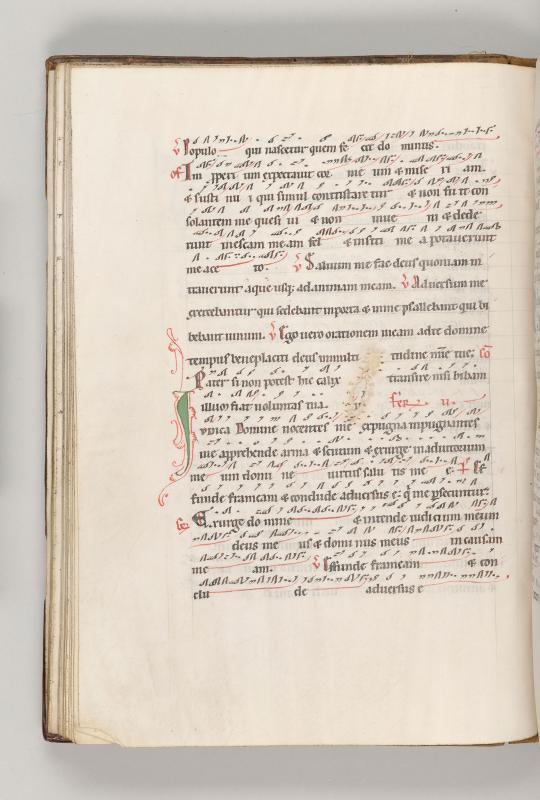 ℣ Populo qui nascetur quem fe cit do minus.
of Im properi um expectavit cor me um & mise ri am.
& susti nu i qui simul contristare tur & non fu it con
solantem me quesi vi & non inve ni & dede
runt in escam me am fel & in siti me a potaverunt
me ace to. ℣ Saluum me fac deus quoniam in
traverunt aque usq; ad animam meam. ℣ Adversum me
exercebantur qui sedebant in porta & in me psallebant qui bi
bebant vinum. ℣ Ego vero orationem meam ad te domine
tempus beneplaciti deus in multi tudine mie tue; co
Pater si non potest hic calix transire nisi bibam
illum fiat voluntas tua. fer ii.
Iudica Domine nocentes me expugna inpugnantes
me apprehende arma & scutum & exurge in adiutorium
me um domi ne virtus salu tis me e.
funde frameam & conclude adversus e; q me psecuntur.
Exurge do mine & intende iudicium meum
deus me us & domi nus meus in causam
me am. ℣ Effunde frameam & con
clu de adversus e